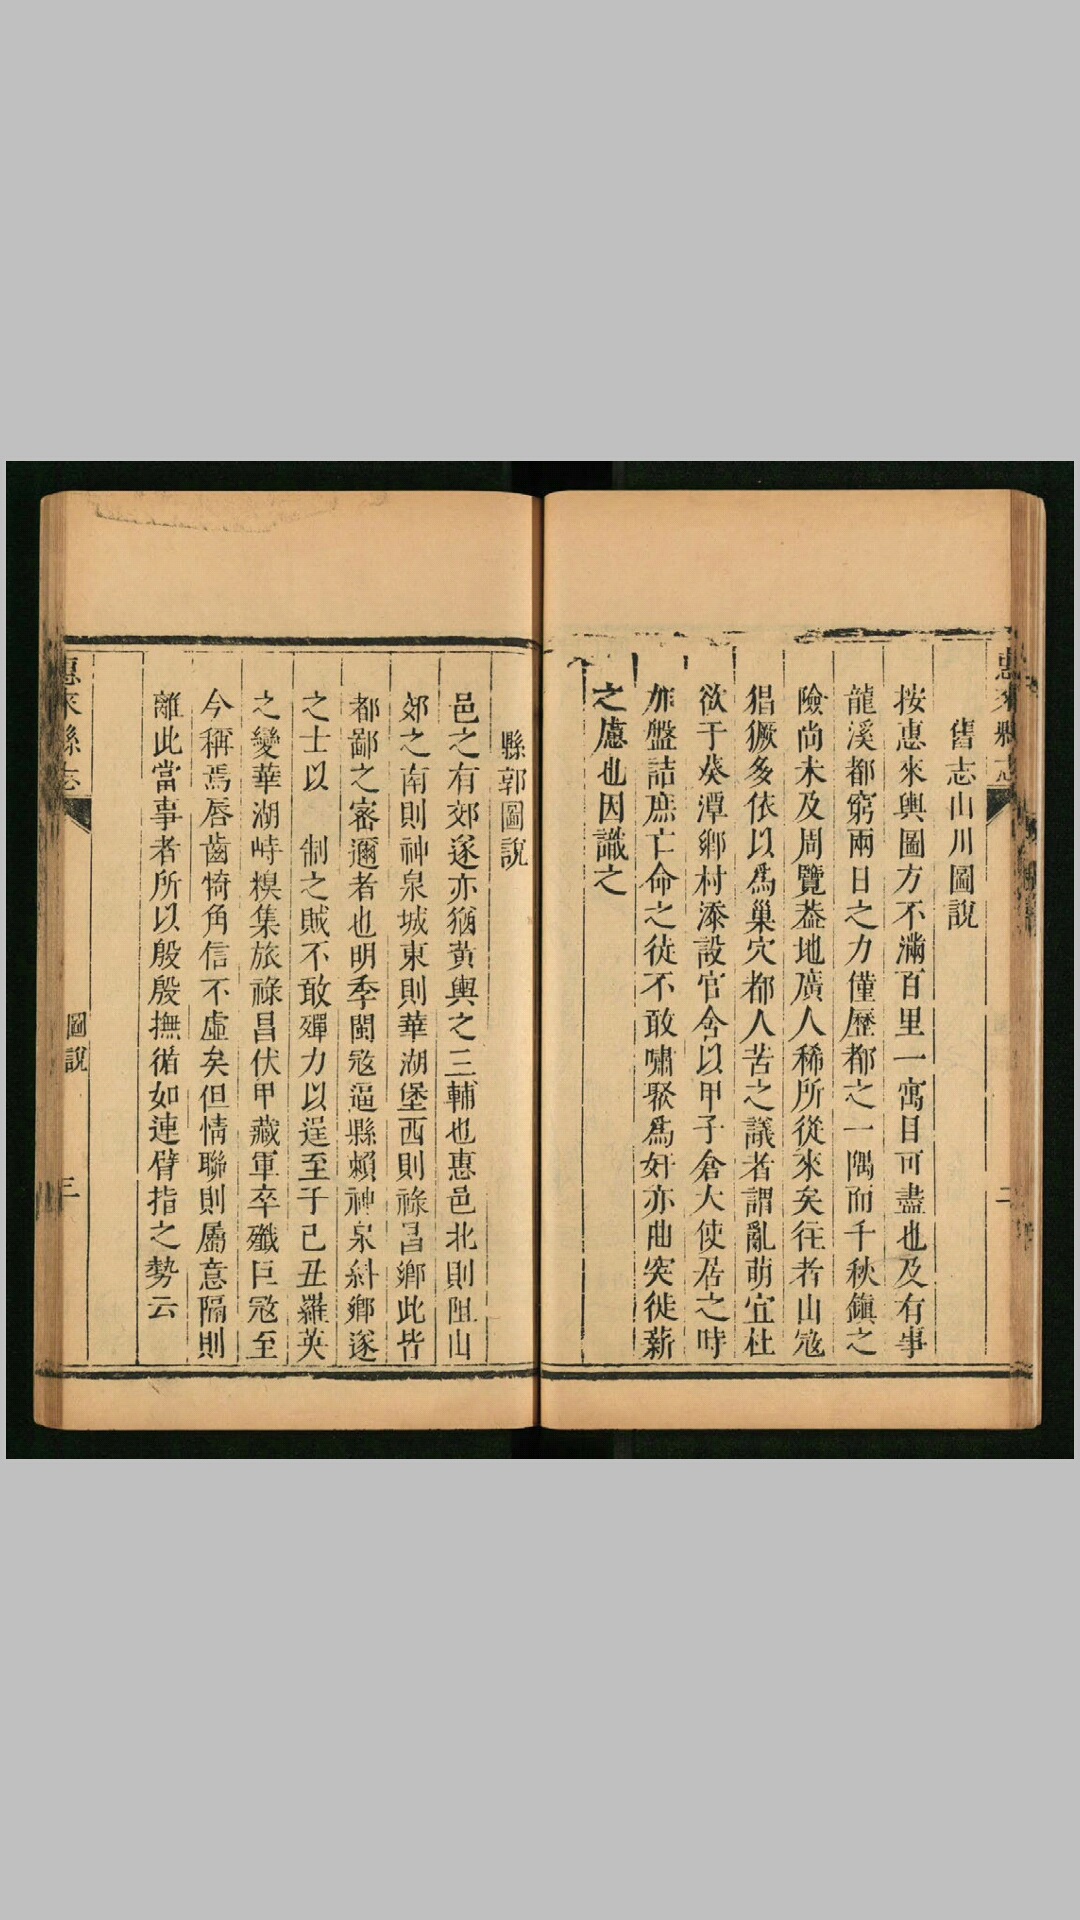 惠來縣志
二
舊志山川圖說
按惠來輿圖方不滿百里一寓目可盡也及有事
龍溪都窮兩日之力僅歷都之一隅而千秋鎮之
險尚未及周覽葢地廣人稀所從來矣往者山㓂
猖獗多依以爲巢穴都人苦之議者謂亂萌宜杜
欲于葵潭鄉村添設官舍以甲子倉大使居之時
加盤詰庶亡命之徒不敢嘯聚爲奸亦曲突徙薪
之慮也因識之
縣郭圖說
邑之有郊遂亦猶黃輿之三輔也惠邑北則阻山
郊之南則神泉城東則華湖堡西則祿昌鄉此皆
都鄙之密邇者也明季閩㓂逼縣賴神泉糾鄉逐
之士以 制之賊不敢殫力以逞至于己丑羅英
之變華湖峙糗集旅祿昌伏甲藏軍卒殲巨㓂至
今稱焉唇齒犄角信不虛矣但情聯則屬意隔則
離此當事者所以殷殷撫循如連臂指之勢云
惠來縣志
圖說
三